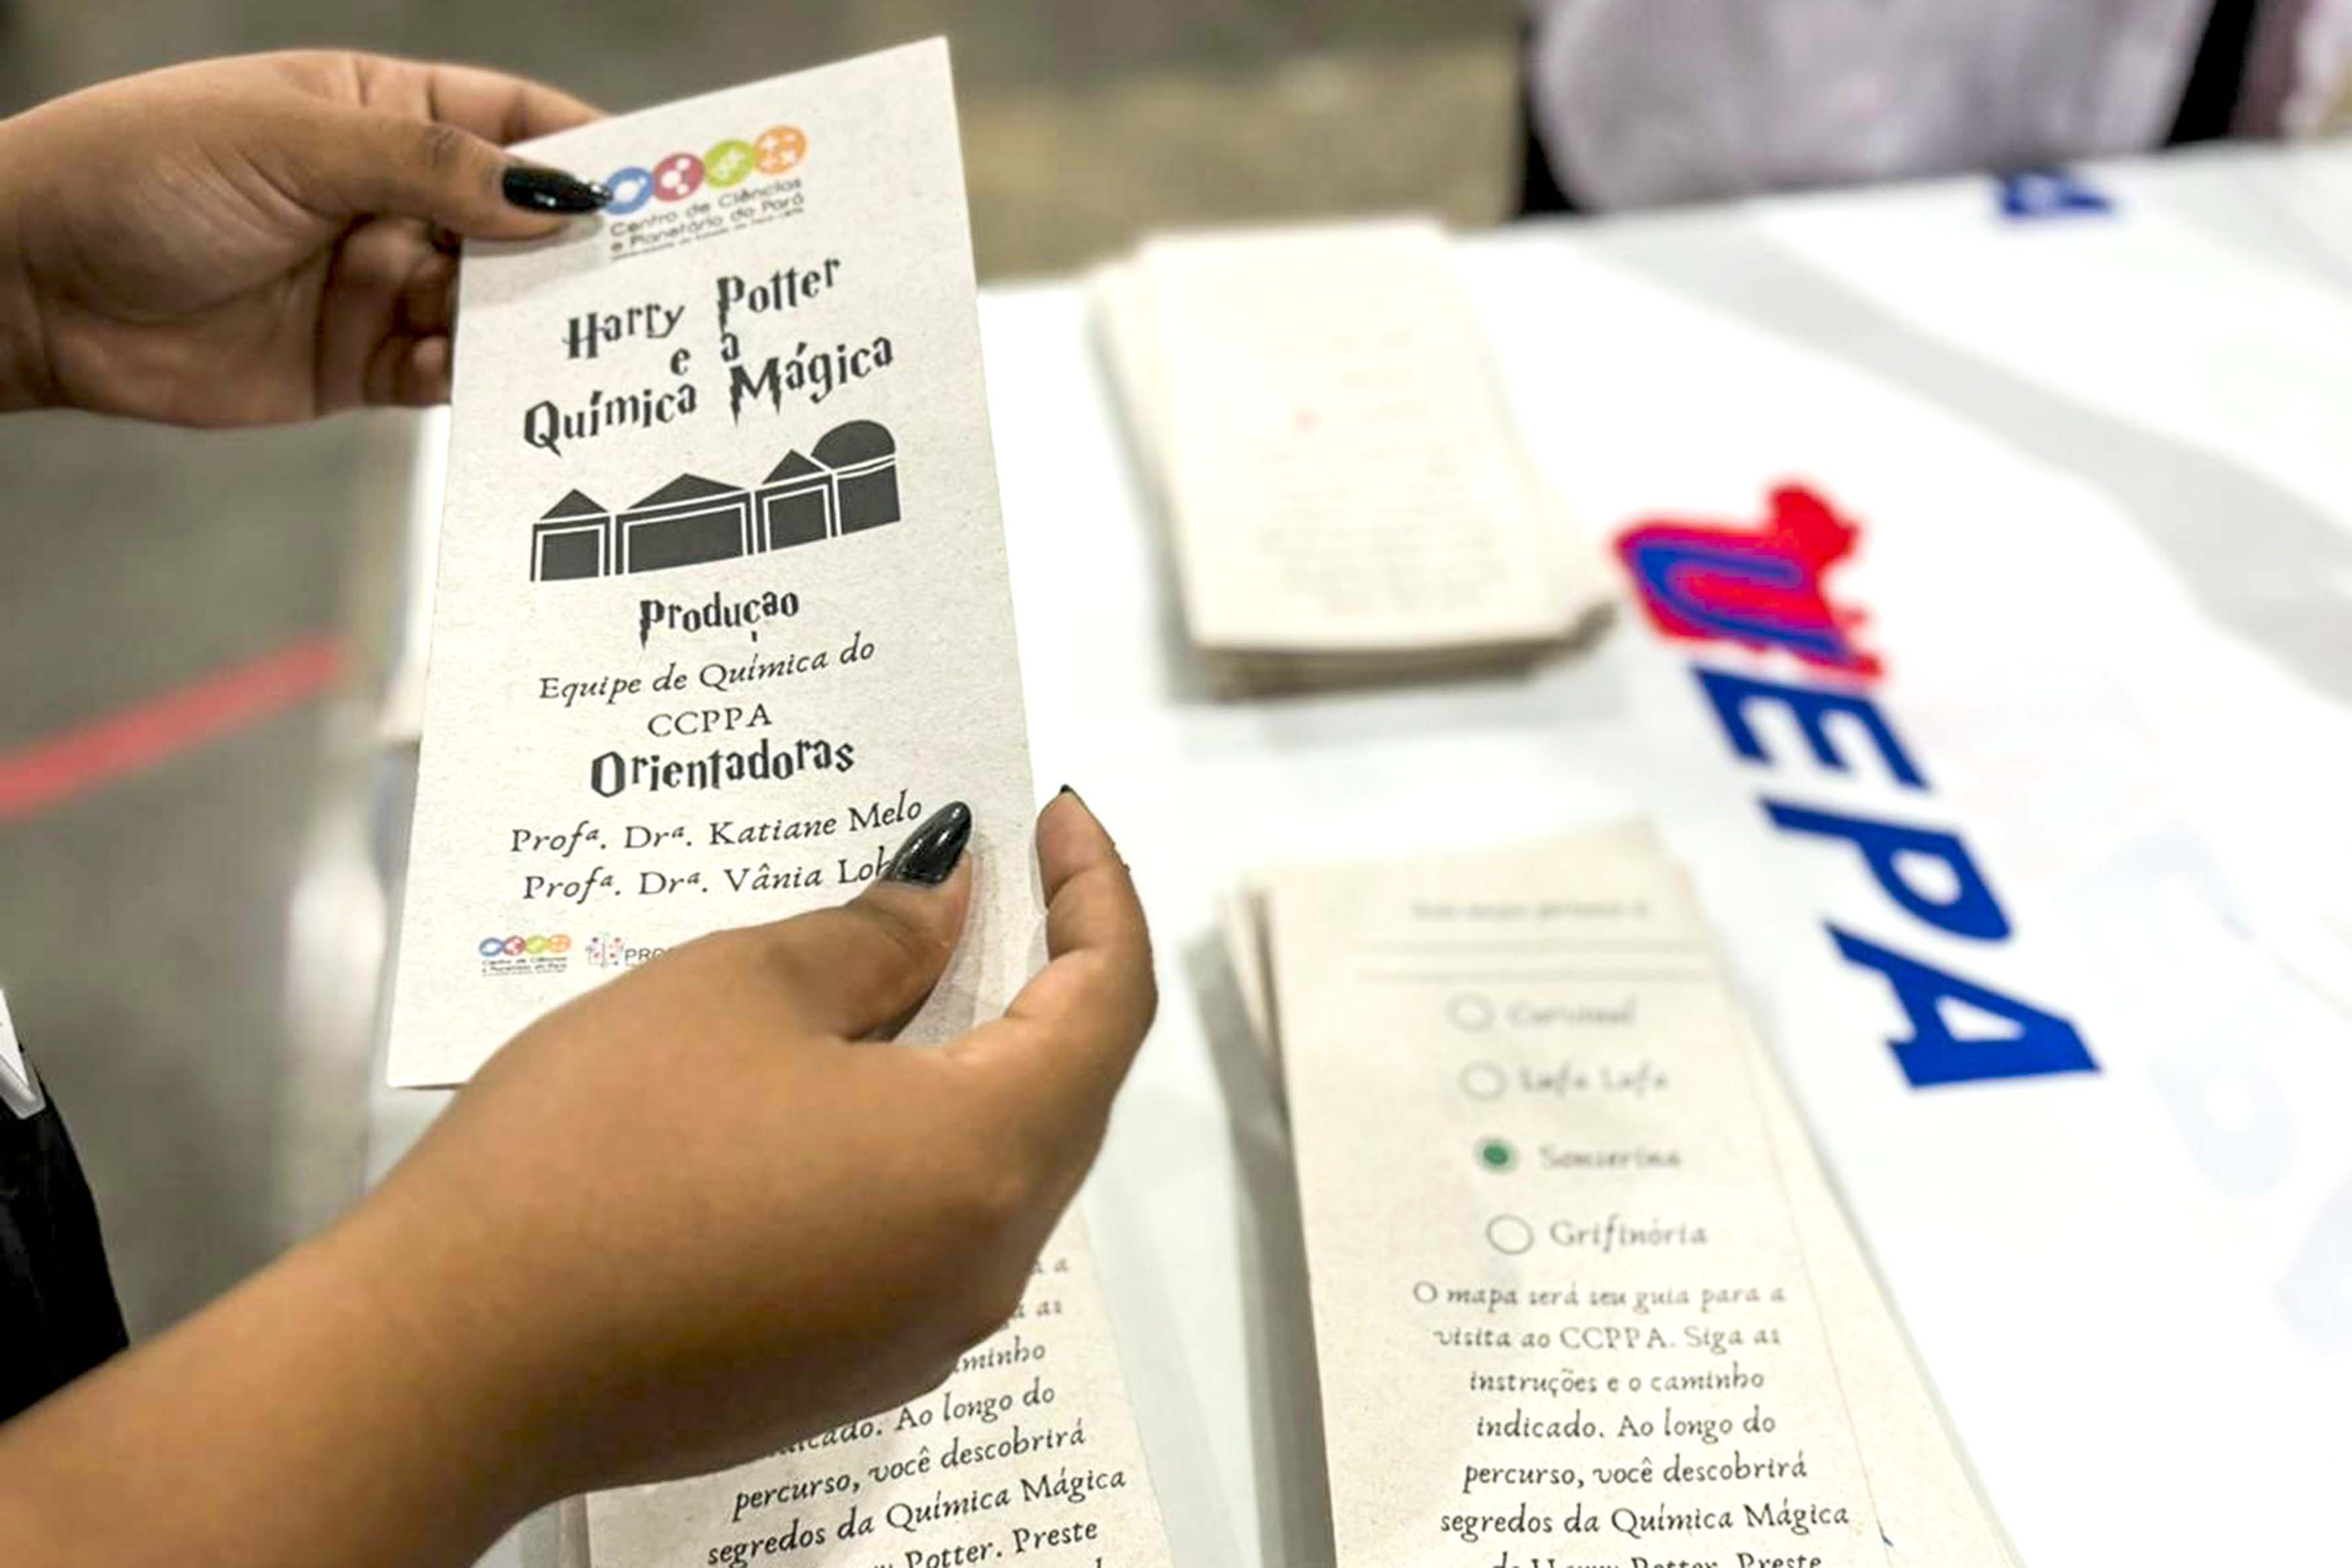 Centro de Ciências
e Planetário do Pará
Harry Potter
e a
Química Mágica
Produçao
Equipe de Química do
CCPPA
Orientadoras
Profª. Drª. Katiane Melo
Profª. Drª. Vânia
Centro de Ciências
e Planetário do Pará
UEPA
Corvinal
Lufa Lufa
Sonserina
Grifinória
O mapa será seu guia para a
visita ao CCPPA. Siga as
instruções e o caminho
indicado. Ao longo do
percurso, você descobrirá
segredos da Química Mágica
Potter. Preste
a
as
Ao longo do
percurso, você descobrirá
segredos da Química Mágica
Potter. Preste